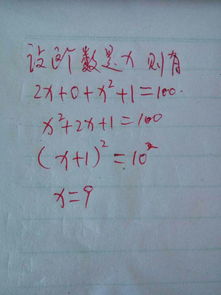 设这个数是x 则有
2x+0+x²+1=100.
x²+2x+1=100
(x+1)²=10²
x=9